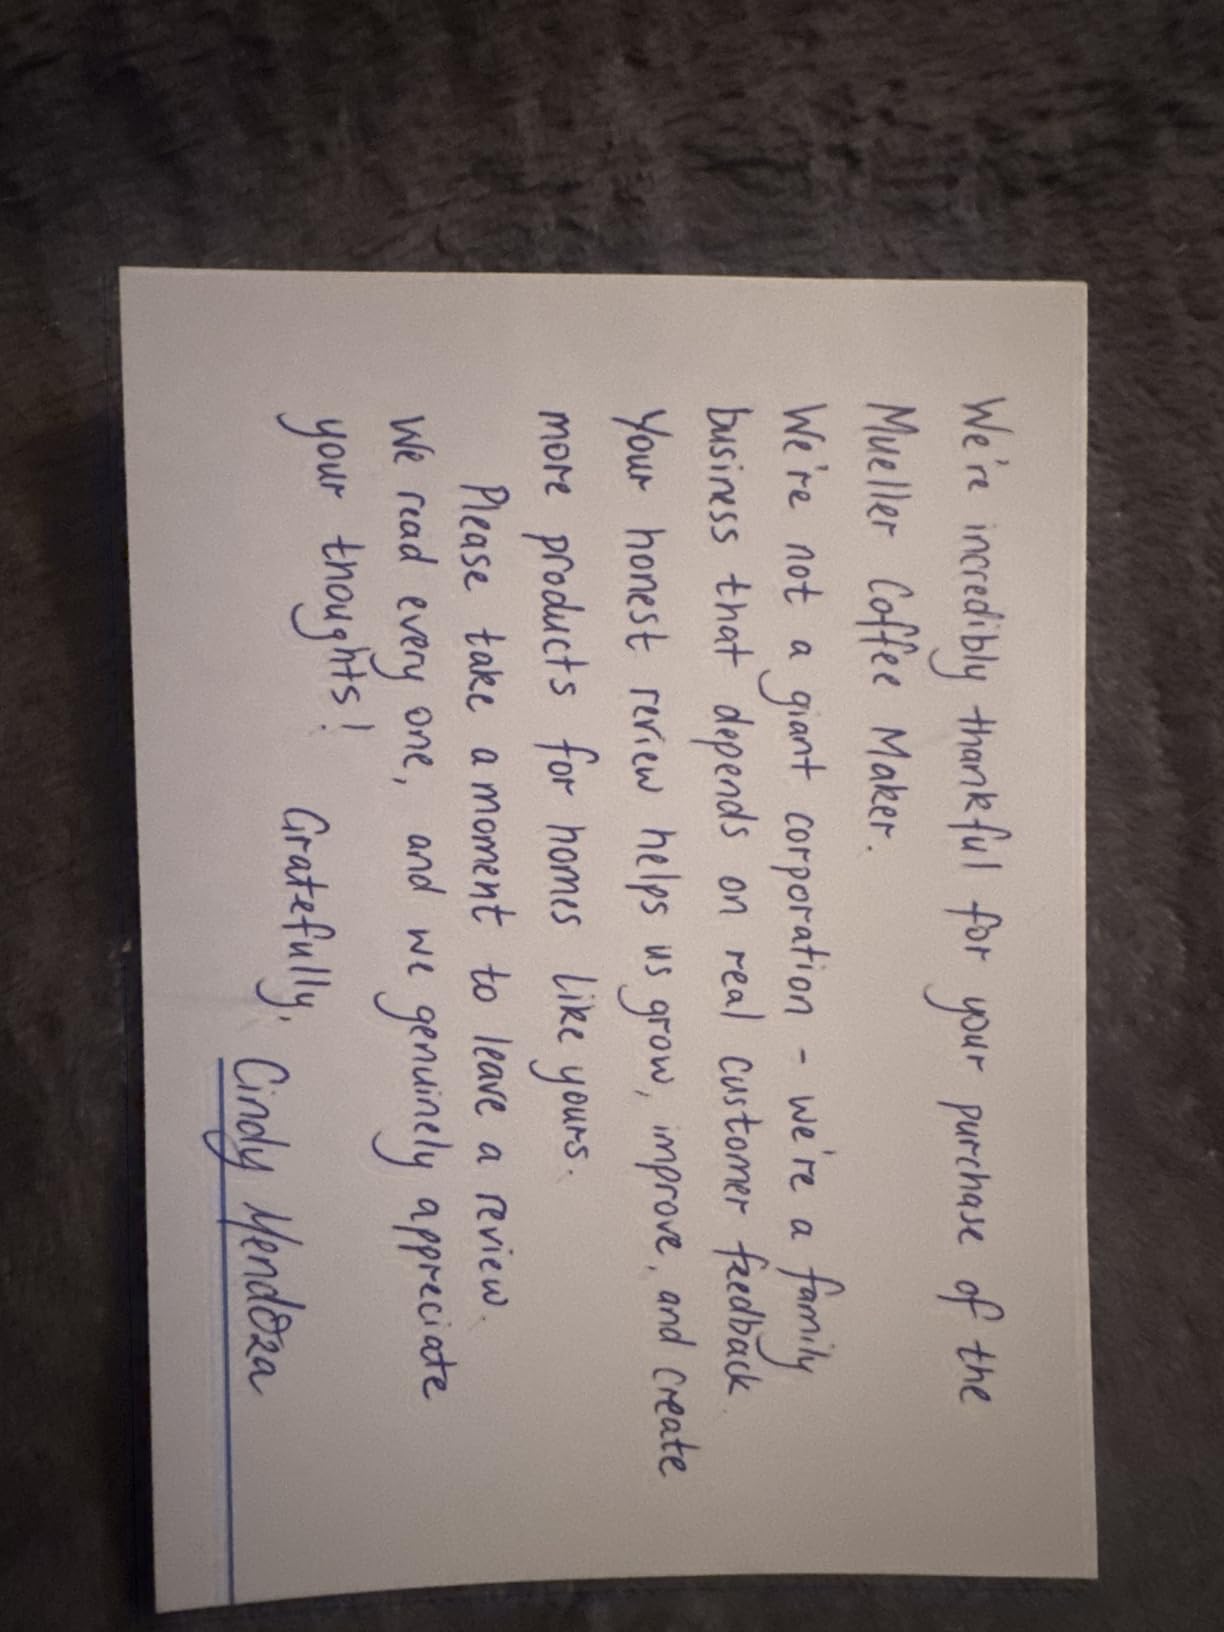 We're incredibly thankful for your purchase of the
Mueller Coffee Maker.
We're not a giant corporation - we're a family
business that depends on real customer feedback.
Your honest review helps us grow, improve, and create
more products for homes like yours.
Please take a moment to leave a review.
We read every one, and we genuinely appreciate
your thoughts!
Gratefully,
Cindy Mendoza